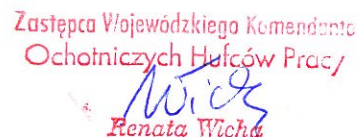 Zastępca Wojewódzkiego Komendanta
Ochotniczych Hufców Pracy
Renata Wicha